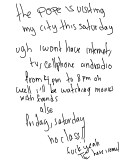 the pope is visiting
my city this saturday
ugh i wont have internet,
tv, cellphone and radio
from 4 pm to 8 pm oh
well i'll be watching movies
with hands
also
friday, saturday
no class!!
fuck yeah